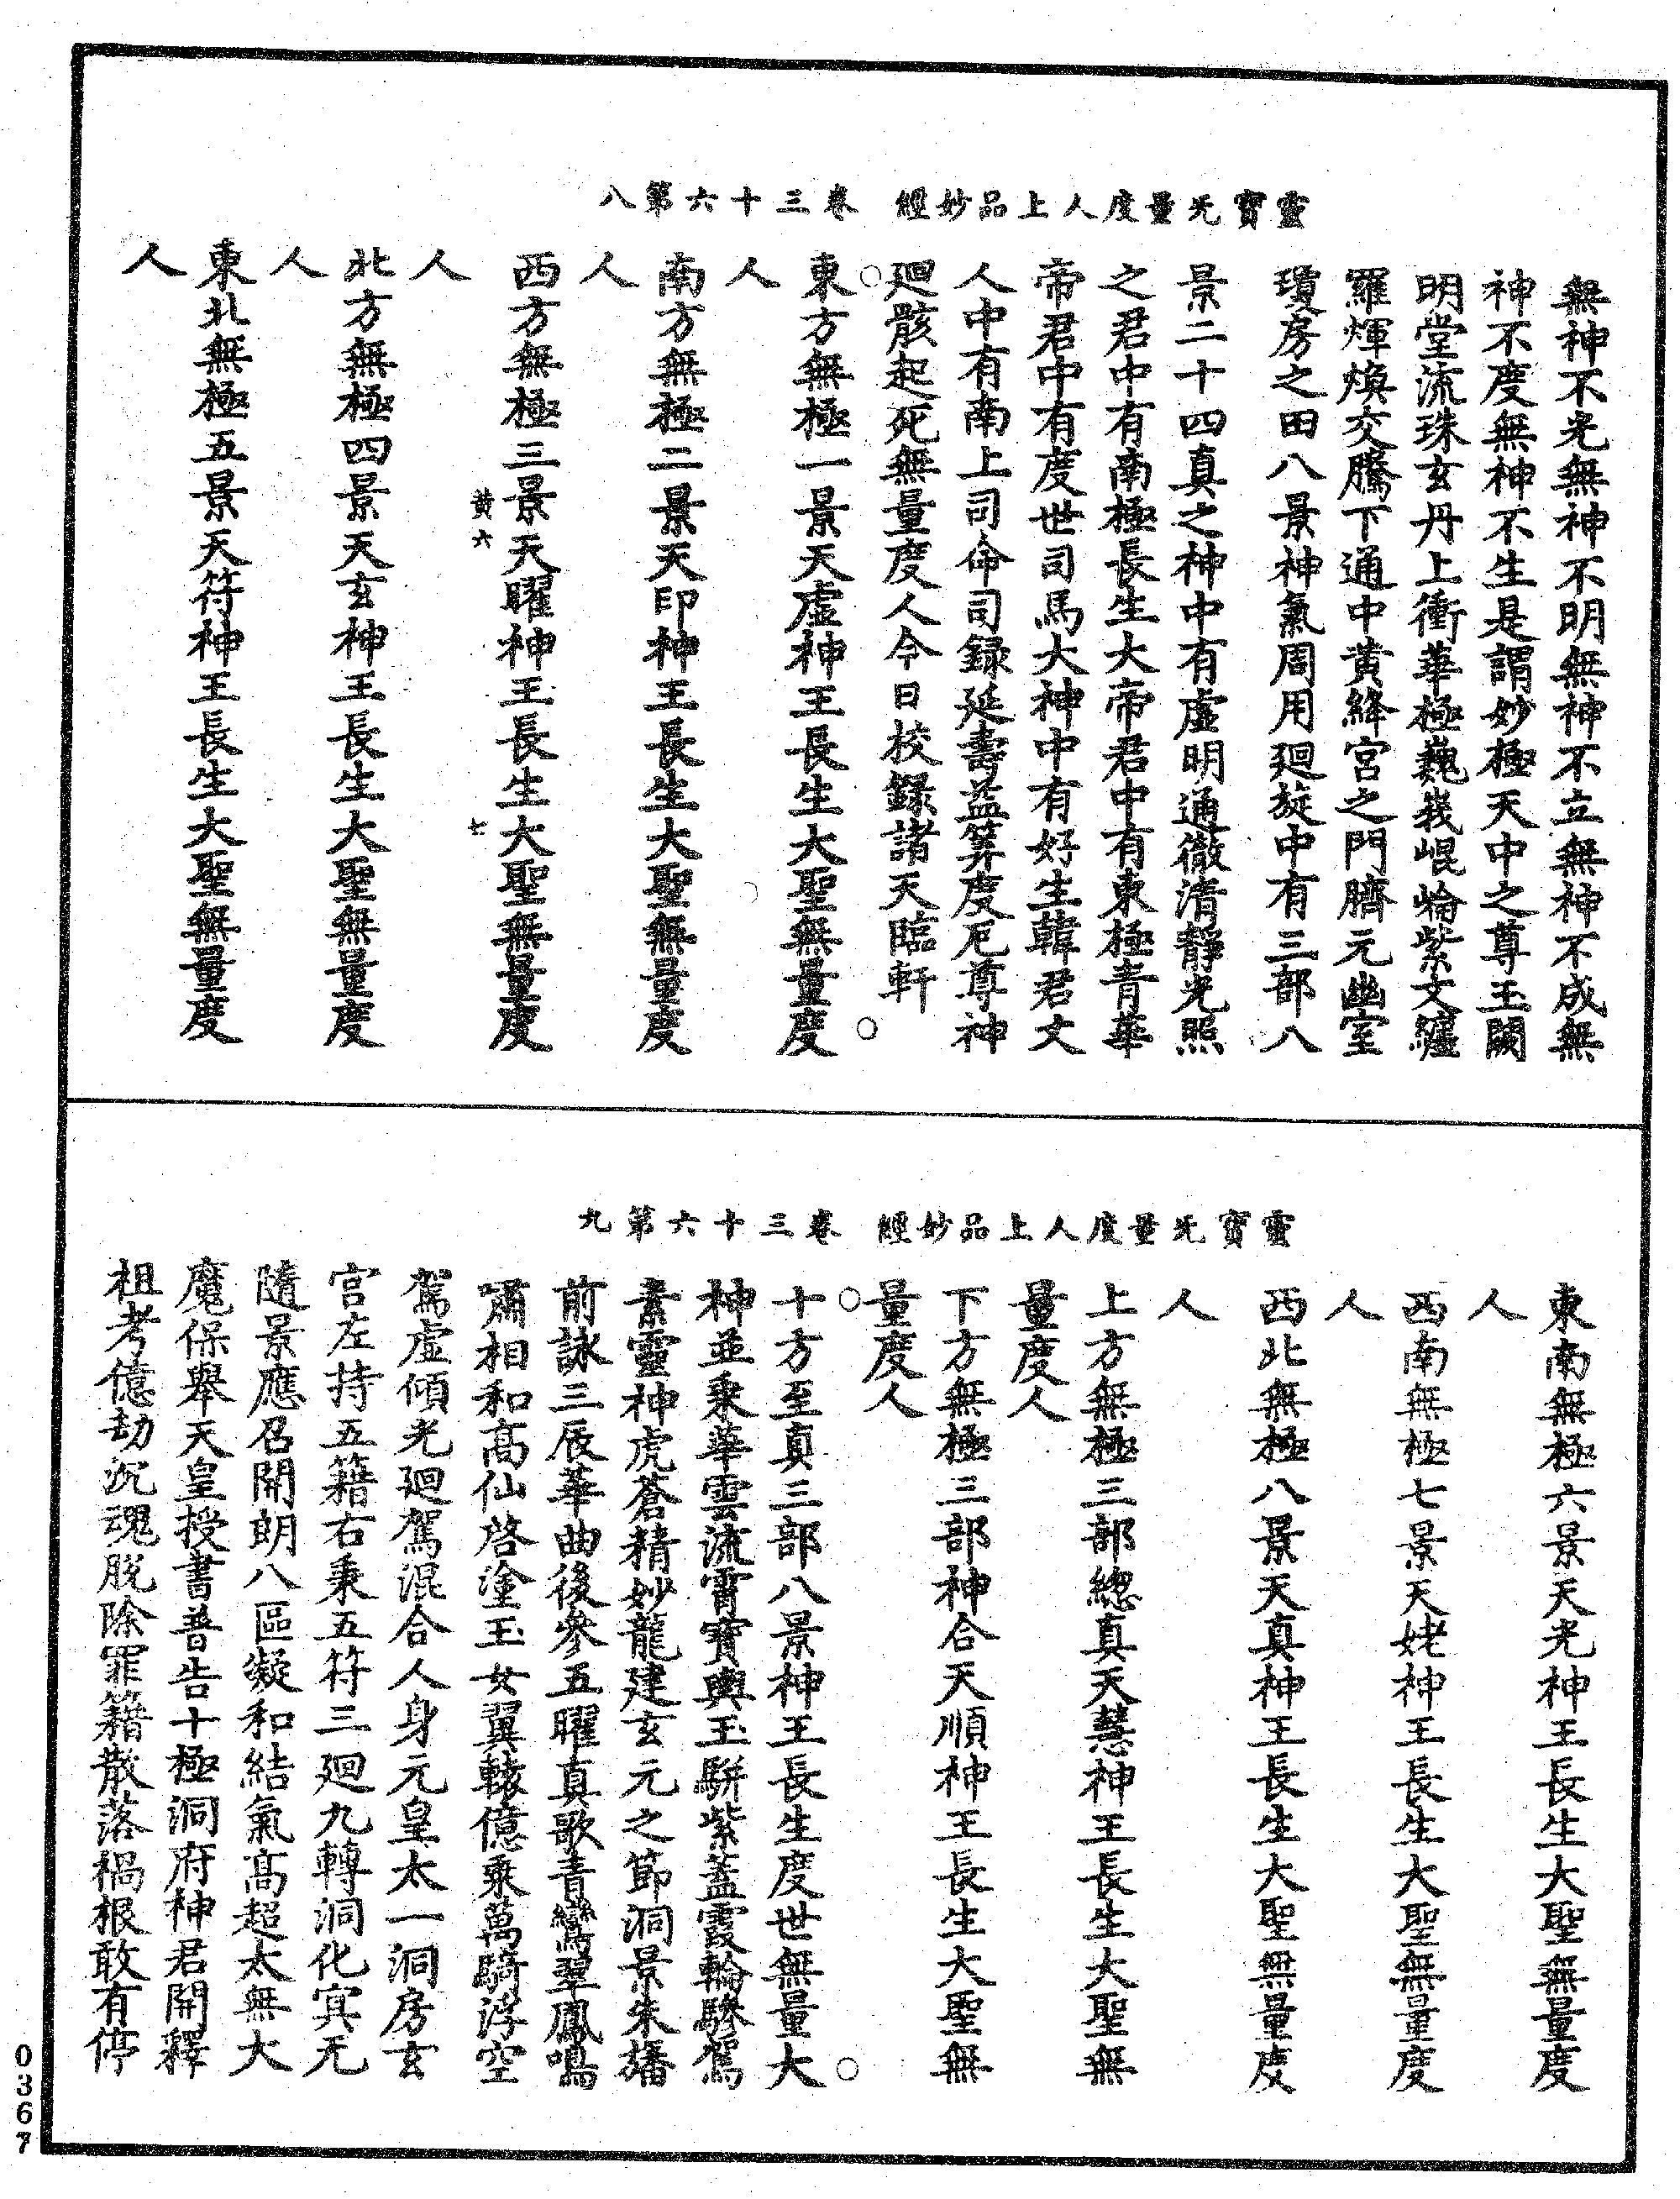 靈寶无量度人上品妙經 卷三十六第八
無神不光無神不明無神不立無神不成無
神不度無神不生是謂妙極天中之尊玉闕
明堂流珠玄丹上衝華極巍峩崐崘紫文纏
羅煇煥交騰下通中黃絳宮之門臍元幽室
瓊房之田八景神氣周用廻旋中有三部八
景二十四真之神中有虛明通徹清靜光照
之君中有南極長生大帝君中有東極青華
帝君中有度世司馬大神中有好生韓君丈
人中有南上司命司錄延壽益筭度厄尊神
廻骸起死無量度人今日校錄諸天臨軒
東方無極一景天虛神王長生大聖無量度
人
南方無極二景天印神王長生大聖無量度
人
西方無極三景天曜神王長生大聖無量度
黃六 七
人
北方無極四景天玄神王長生大聖無量度
人
東北無極五景天符神王長生大聖無量度
人
靈寶无量度人上品妙經 卷三十六第九
東南無極六景天光神王長生大聖無量度
人
西南無極七景天姥神王長生大聖無量度
人
西北無極八景天真神王長生大聖無量度
人
上方無極三部總真天慧神王長生大聖無
量度人
下方無極三部神合天順神王長生大聖無
量度人
十方至真三部八景神王長生度世無量大
神並乘華雲流霄寶輿玉駢紫蓋霞輪驂駕
素靈神虎蒼精妙龍建玄元之節洞景朱旛
前詠三辰華曲後參五曜真歌青鸞翠鳳鳴
嘯相和高仙啓塗玉女翼轅億乘萬騎浮空
駕虛傾光廻駕混合人身元皇太一洞房玄
宮左持五籍右秉五符三廻九轉洞化冥无
隨景應召開朗八區凝和結氣高超太無大
魔保舉天皇授書普告十極洞府神君開釋
祖考億劫沉魂脫除罪籍散落禍根敢有停
0367